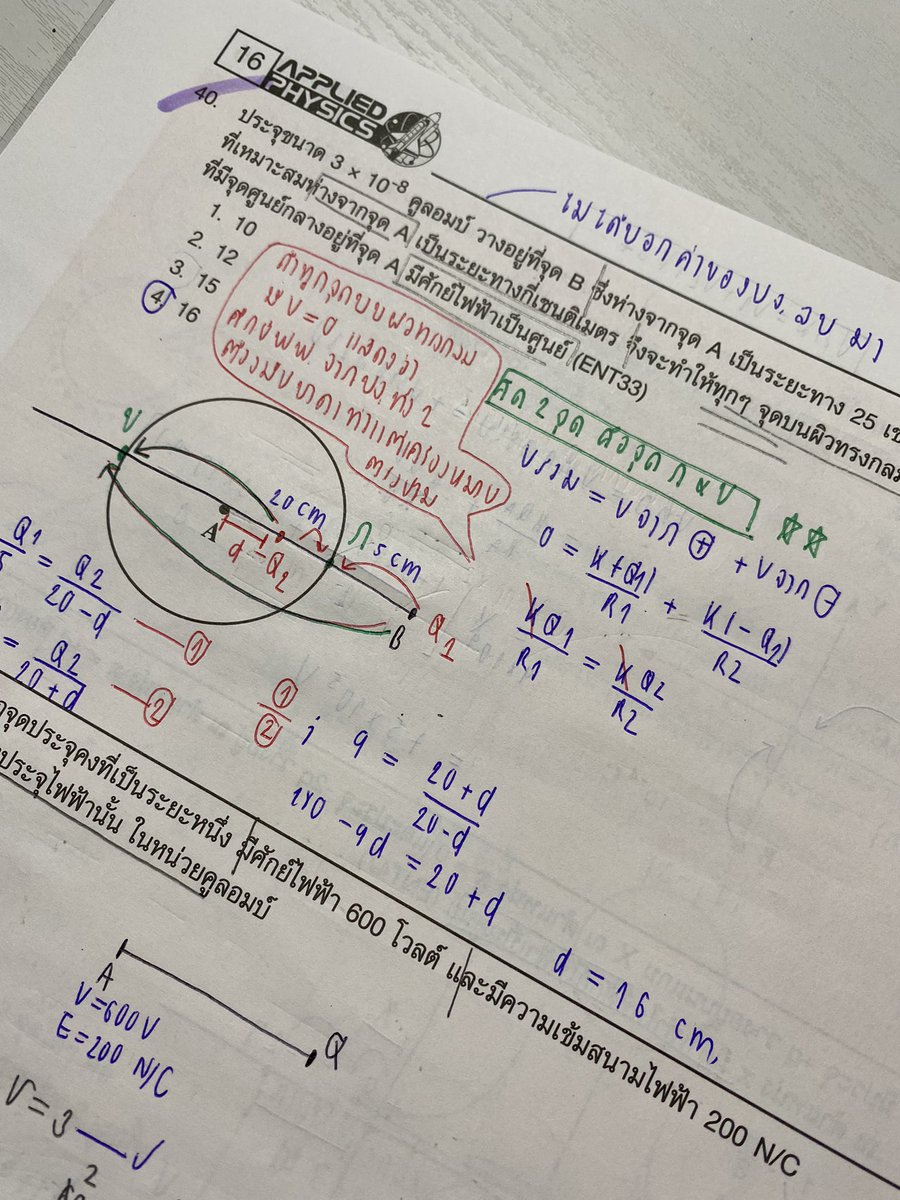 16 APPLIED PHYSICS
40.
ประจุขนาด 3 × 10⁻⁸ คูลอมบ์ วางอยู่ที่จุด B ซึ่งห่างจากจุด A เป็นระยะทาง 25
ที่เหมาะสมห่างจากจุด A เป็นระยะทางกี่เซนติเมตร จึงจะทำให้ทุกๆ จุดบนผิวทรงกลม
ที่มีจุดศูนย์กลางอยู่ที่จุด A มีศักย์ไฟฟ้าเป็นศูนย์ (ENT33)
1. 10
2. 12
3. 15
4. 16
ไม่ได้บอกค่าของปจ. ลบ มา
ถ้าทุกจุดบนผิวทรงกลม
มี V = 0 แสดงว่า
ศักย์ฟฟ. จาก ปจ. ทั้ง 2
ตรงข้าม
คิด 2 จุด คือจุด ก & ข
V รวม = V จาก ⊕ + V จาก ⊖
0 = K(+Q1)/R1 + K(-Q2)/R2
KQ1/R1 = KQ2/R2
ข
A
20 cm
d
-Q2
ก
5 cm
B
Q1
Q1/5 = Q2/20-d ①
= Q2/20+d ②
①/② ; 9 = 20+d/20-d
180 - 9d = 20 + d
d = 16 cm
จุดประจุคงที่เป็นระยะหนึ่ง มีศักย์ไฟฟ้า 600 โวลต์ และมีความเข้มสนามไฟฟ้า 200 N/C
ประจุไฟฟ้านั้น ในหน่วยคูลอมบ์
A
V=600V
E=200 N/C
Q